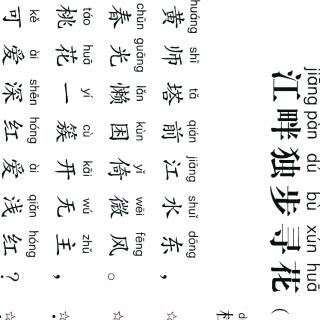 jiāng pàn dú bù xún huā
江畔独步寻花（
huáng shī tǎ qián jiāng shuǐ dōng
黄师塔前江水东，
chūn guāng lǎn kùn yǐ wēi fēng
春光懒困倚微风。
táo huā yí cù kāi wú zhǔ
桃花一簇开无主，
kě ài shēn hóng ài qiǎn hóng
可爱深红爱浅红？